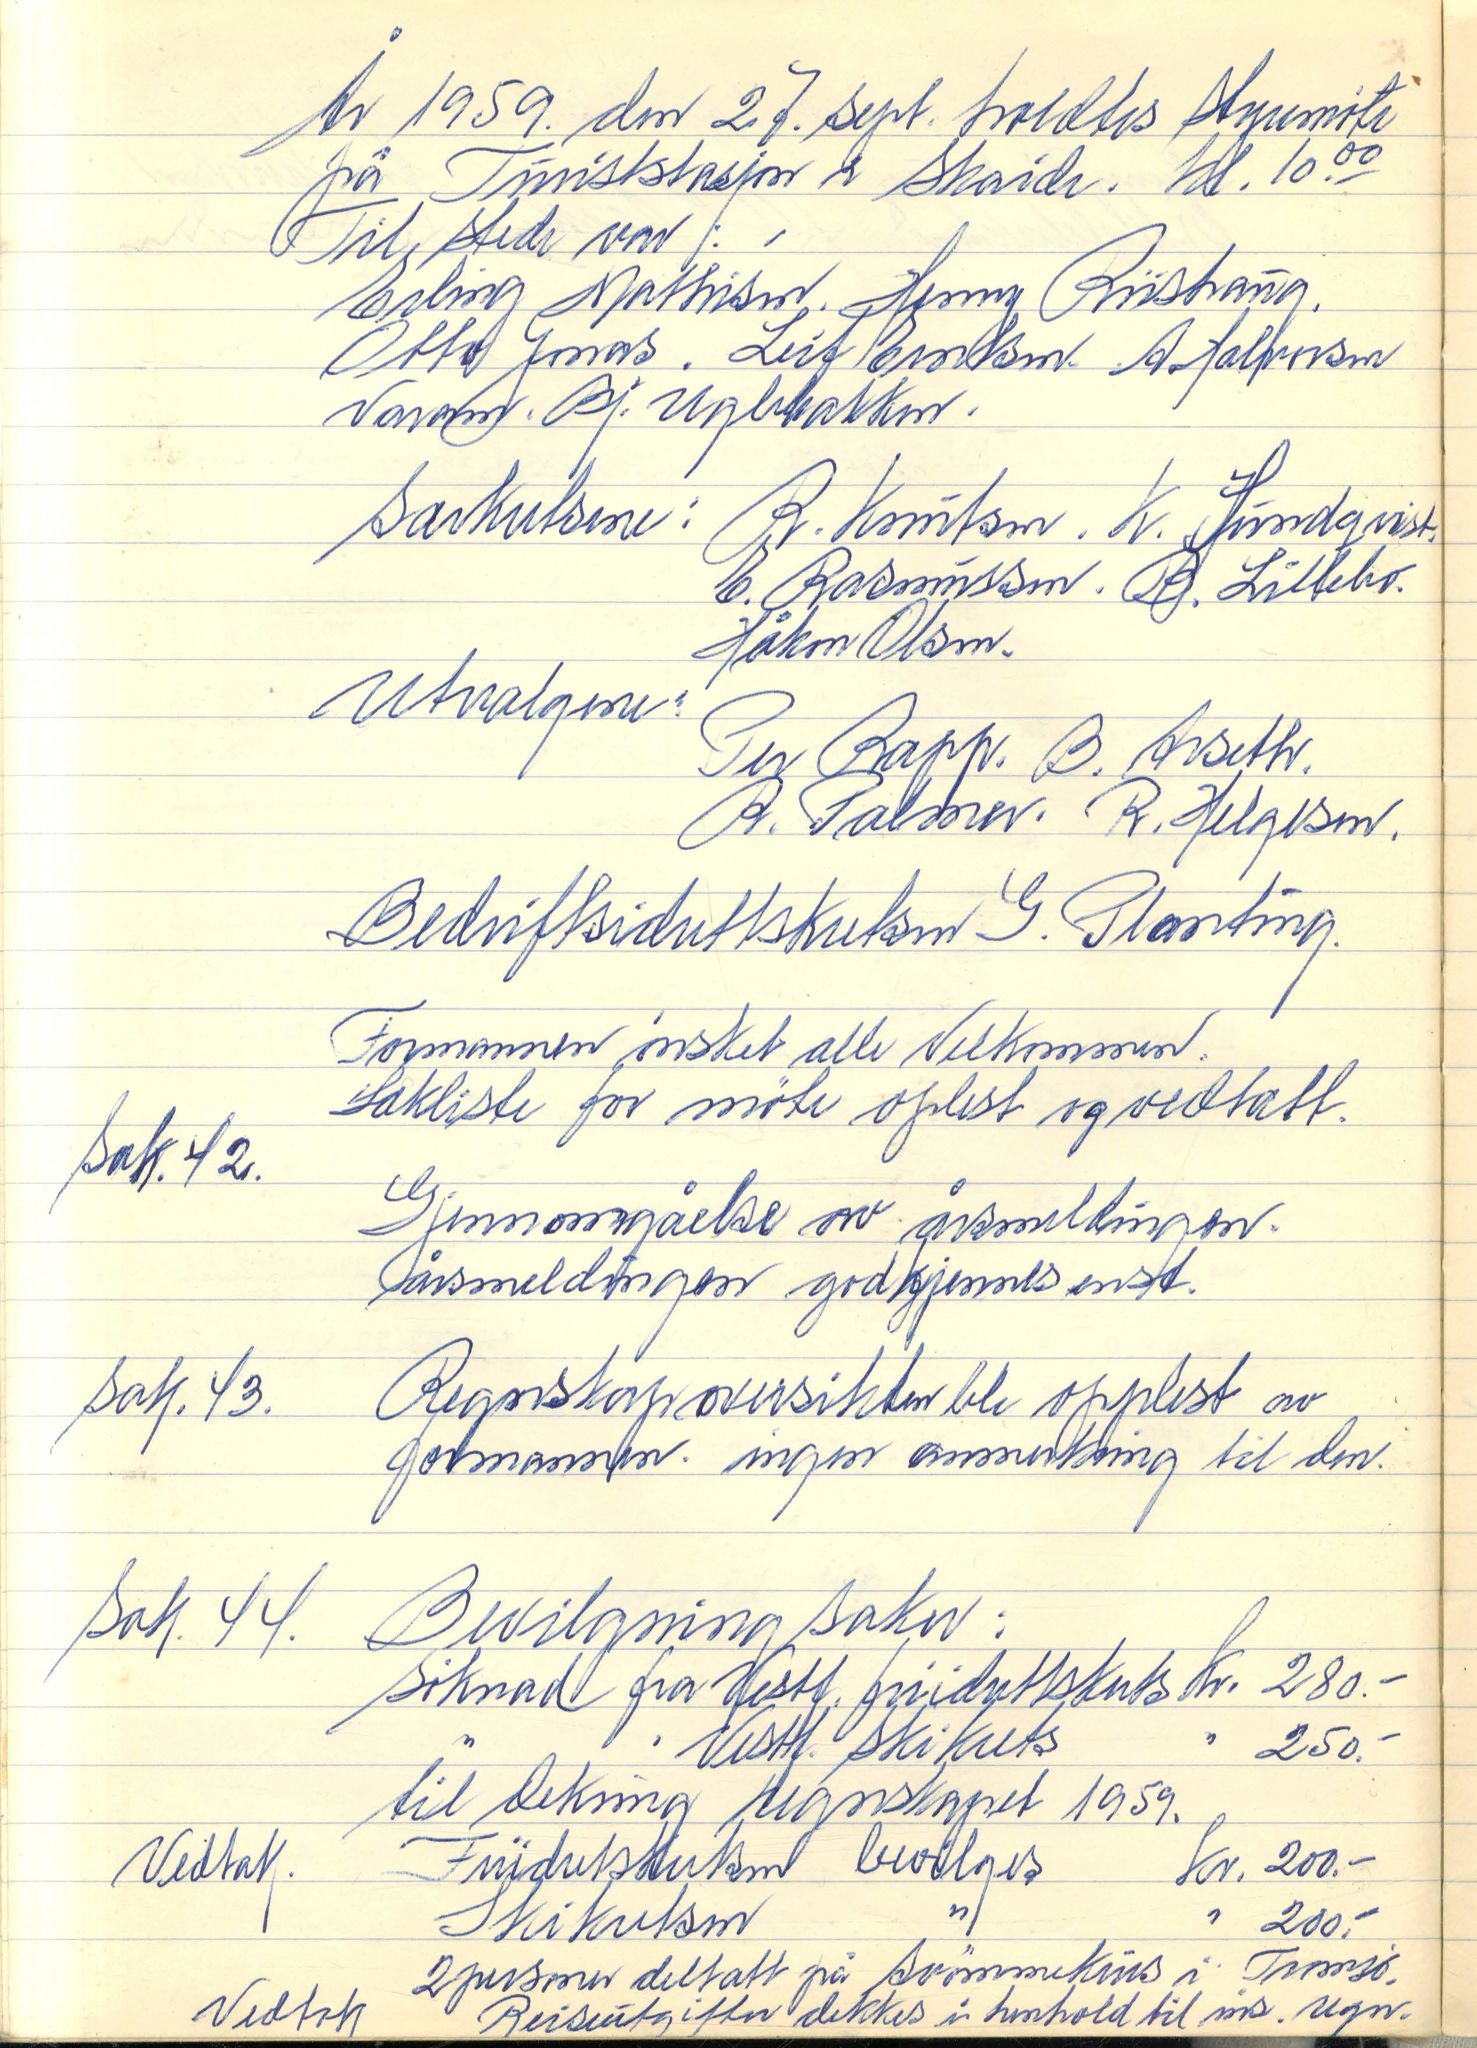 År 1959. den 27. sept. holdtes styremöte
på Turiststasjon i Skaidi. kl. 10.00
Til stede var:
Erling Mathisen. Henry Riishaug.
Otto Jonas. Leif Eriksen. A. Halvorsen
Varam. Bj. Uglebakken.
Særkretsene: R. Knutsen. K. Hundqvist.
E. Rasmussen. B. Lillebo.
Håkon Olsen.
Utvalgene:
Per Rapp. B. Arseth.
R. Palmer. R. Helgesen.
Bedriftsidrettskretsen G. Planting.
Formannen önsket alle velkommen.
Sakliste for möte oplest og vedtatt.
Sak. 42.
Gjennomgåelse av årsmeldingen.
Årsmeldingen godkjennes enst.
Sak. 43. Regnskapoversikten ble opplest av
formannen. ingen anmerkning til den.
Sak. 44. Bevilgning saker:
Söknad fra Vestf. friidrettskrets Kr. 280.-
" " Vestf. Skikrets " 250.-
til dekning regnskapet 1959.
Vedtak. Friidretskretsen bevilges Kr. 200.-
Skikretsen " " 200.-
2 personer deltatt på svömmekurs i Tromsö.
Vedtak Reiseutgifter dekkes i henhold til inns. regn.